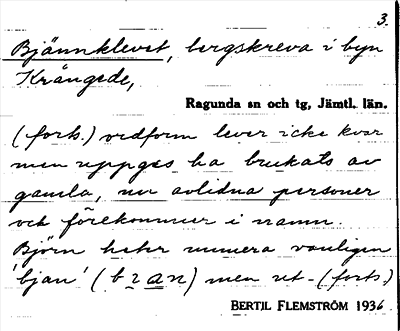 3.
Bjännklevet, bergskreva i byn
Krångede,
Ragunda sn och tg, Jämtl. län.
(forts.) ordform lever icke kvar
men uppges ha brukats av
gamla, nu avlidna personer
och förekommer i namn.
Björn heter numera vanligen
'bjan' (bzan) men ut- (forts.)
BERTIL FLEMSTRÖM 1936